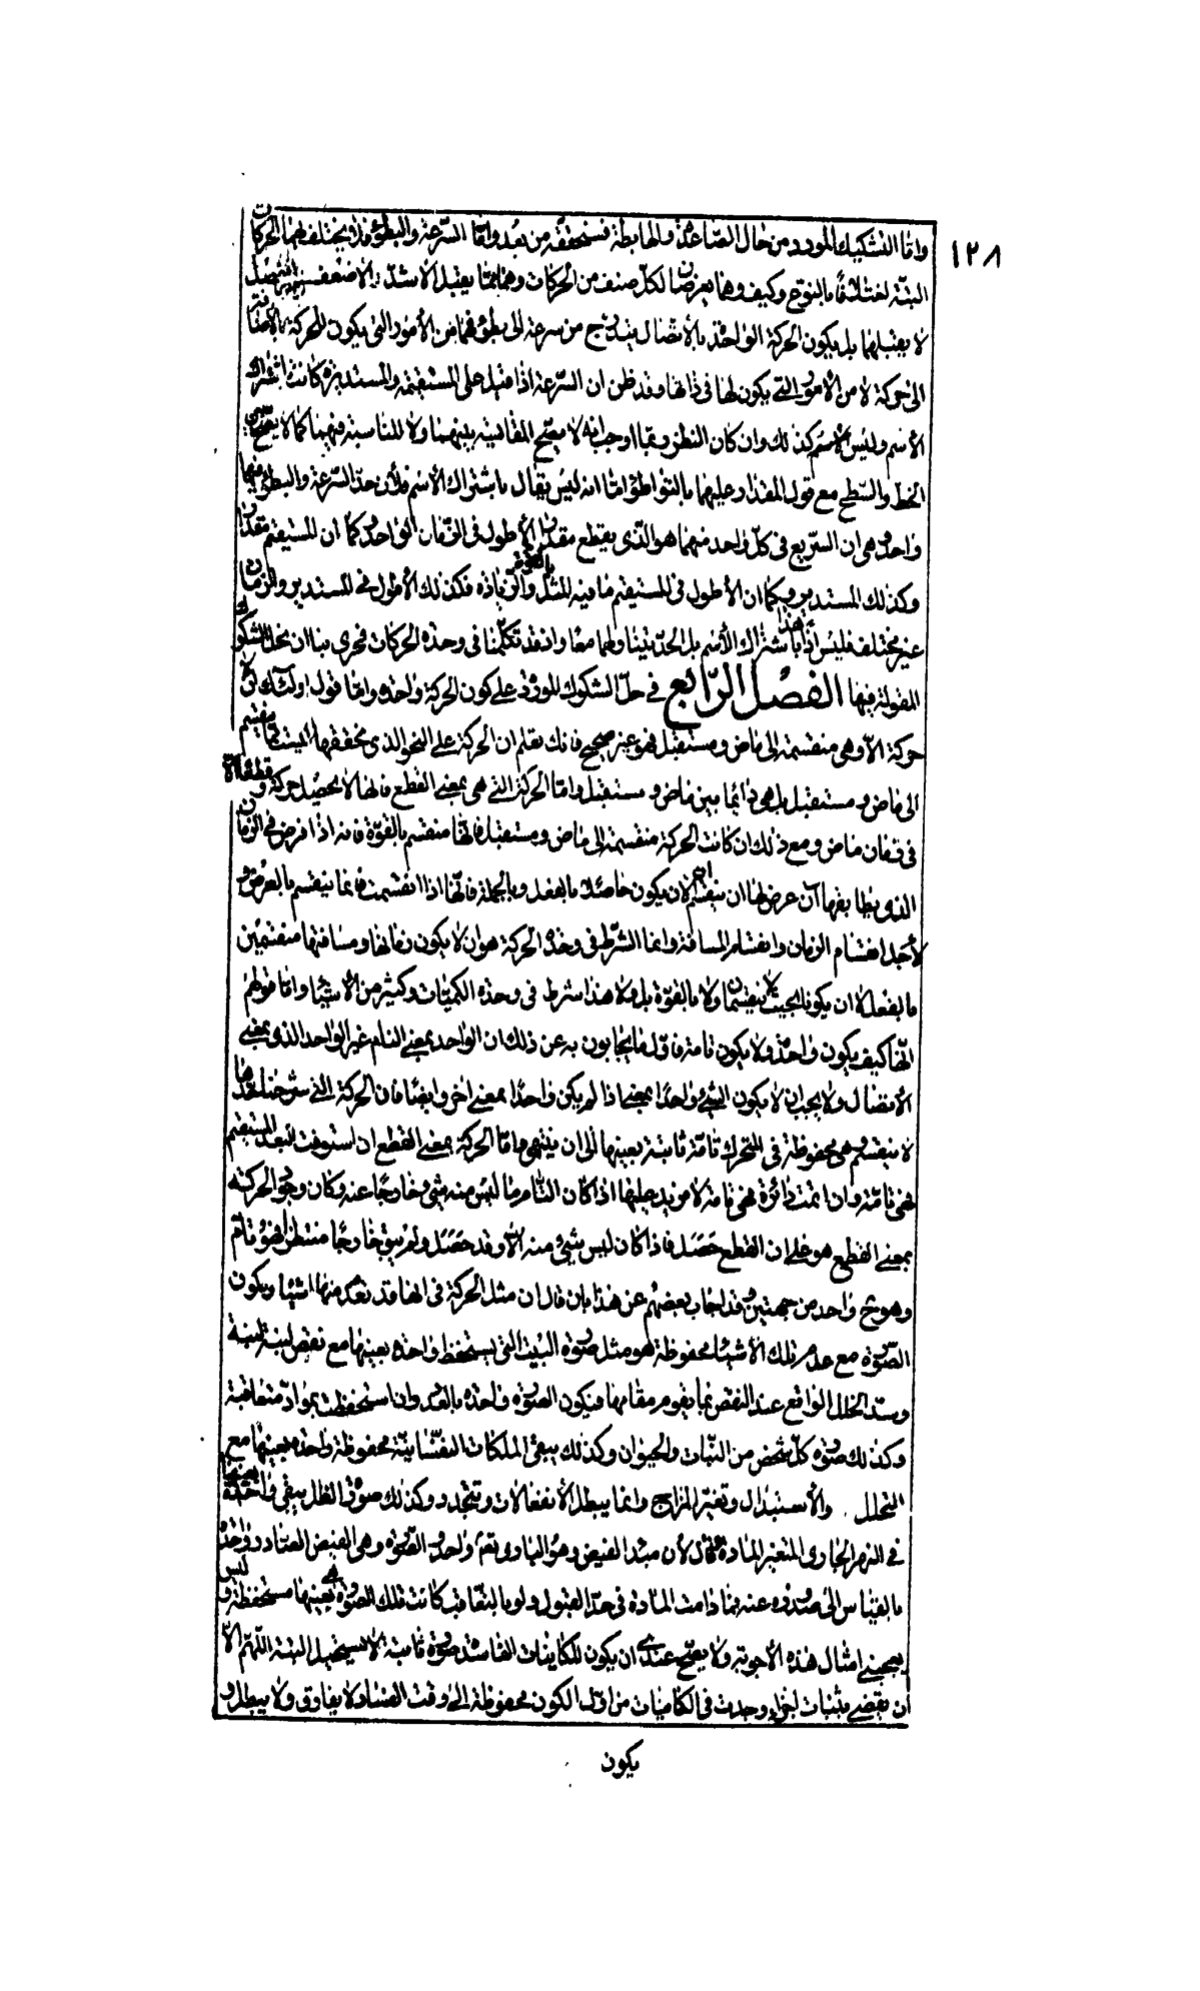 ١٢٨
واما التشكيك المورد من حال الصاعدة والهابطة فسنحققه من بعد واما السرعة والبطؤ فلا يختلف بهما الحركات
البتة اختلافا بالنوع وكيف وهما يعرضان لكل صنف من الحركات وهما مما يقبل الاشد والاضعف والفصل
لا يقبلهما بل يكون الحركة الواحدة بالاتصال يتدرج من سرعة الى بطؤ فهما من الأمور التي يكون للحركة بالاضافة
الى حركة لا من الأمور التي يكون لها في ذاتها وقد ظن ان السرعة اذا قيل على المستقيمة والمستديرة كانت باشتراك
الأسم وليس الأمر كذلك وان كان النظر ربما اوجب انه لا يصح المقايسة بينهما ولا المناسبة فيهما كما لا يصح بين
الخط والسطح مع قول المقدار عليهما بالتواطؤ اما انه ليس يقال باشتراك الأسم فلأن حد السرعة والبطؤ فيهما
واحد وهي ان السريع في كل واحد منهما هو الذي يقطع مقدارا أطول في الزمان الواحد وكما ان للمستقيم مقدارا
وكذلك المستدير وكما ان الأطول في المستقيم ما فيه المثل بالقوة والزيادة فكذلك الأطول في المستدير والزمان
غير مختلف فليس اذا هذا باشتراك الأسم بل الحد يتناولهما معا واذ قد تكلمنا في وحدة الحركات فحري بنا ان نحل الشكوك
المقولة فيها الفصل الرابع في حل الشكوك الموردة على كون الحركة واحدة واما قول اولئك لان لا
حركة الا وهي منقسمة الى ماض ومستقبل فهو غير صحيح فانك تعلم ان الحركة على النحو الذي نحققها ليست مما ينقسم
الى ماض ومستقبل بل هي دائما بين ماض ومستقبل واما الحركة التي هي بمعنى القطع فانها لا يحصل حركة وقطعا الا
في زمان ماض ومع ذلك ان كانت الحركة منقسمة الى ماض ومستقبل فانها منقسم بالقوة فانه اذا فرض في الزمان
الذي يطابقها آن عرض لها ان ينقسم لان يكون حاصلا بالفعل وبالجملة فانها اذا انقسمت فانما ينقسم بالعرض و
لأجل انقسام الزمان وانقسام المسافة وانما الشرط في وحدة الحركة هو ان لا يكون زمانها ومسافتها منقسمين
بالفعل لا ان يكونا بحيث لا ينقسمان ولا بالقوة بل ولا هذا شرط في وحدة الكميات وكثير من الأشياء واما قولهم
انها كيف يكون واحدة ولا يكون تامة فاول ما يجابون به عن ذلك ان الواحد بمعنى التام غير الواحد الذي بمعنى
الأتصال ولا يجب ان لا يكون الشئ واحدا بمعنى اذا لم يكن واحدا بمعنى اخر وايضا فان الحركة التي شرحنا حدها
لا ينقسم وهي محفوظة في المتحرك تامة ثابتة بعينها الى ان ينتهي واما الحركة بمعنى القطع ان استوفت البعد المستقيم
فهي تامة وان اتمت دائرة فهي تامة لا مزيد عليها اذا كان التام ما ليس منه شئ خارجا عنه وكان وجود الحركة
بمعنى القطع هو على ان القطع حصل فاذا كان ليس شئ منه الا وقد حصل ولم يبق خارجا منتظرا فهو تام
وهو شئ واحد من جهتين وقد اجاب بعضهم عن هذا بان قال ان مثل الحركة في انها قد يعدم منها اشياء ويكون
الصورة مع عدم تلك الأشياء محفوظة هو مثل صورة البيت التي يستحفظ واحدة بعينها مع نقص لبنة لبنة
وسد الخلل الواقع عند النقص بما يقوم مقامها فيكون الصورة واحدة بالعدد وان استحفظت بمواد متعاقبة
وكذلك صورة كل شخص من النبات والحيوان وكذلك يبقى الملكات النفسانية محفوظة واحدة بعينها مع
التحلل والأستبدال وتغير المزاج وانما يبطل الأنفعالات وتتجدد وكذلك صورة الظل يبقى واحدة بعينها
في النهر الجاري المتغير المادة قال لأن مبدأ الفيض وهو الباري تع واحد والصورة وهي الفيض الصادر واحد
بالقياس الى صدوره عنه فما دامت المادة في حد القبول ولو بالتعاقب كانت تلك الصورة هي بعينها مستحفظة وليس
يعجبني امثال هذه الأجوبة ولا يصح عندي ان يكون للكاينات الفاسدة صورة ثابتة لا تستحيل البتة اللهم الا
ان يقضى بثبات اجزاء وجدت في الكائنات من اول الكون محفوظة الى وقت الفساد لا يفارق ولا يبطل و
يكون